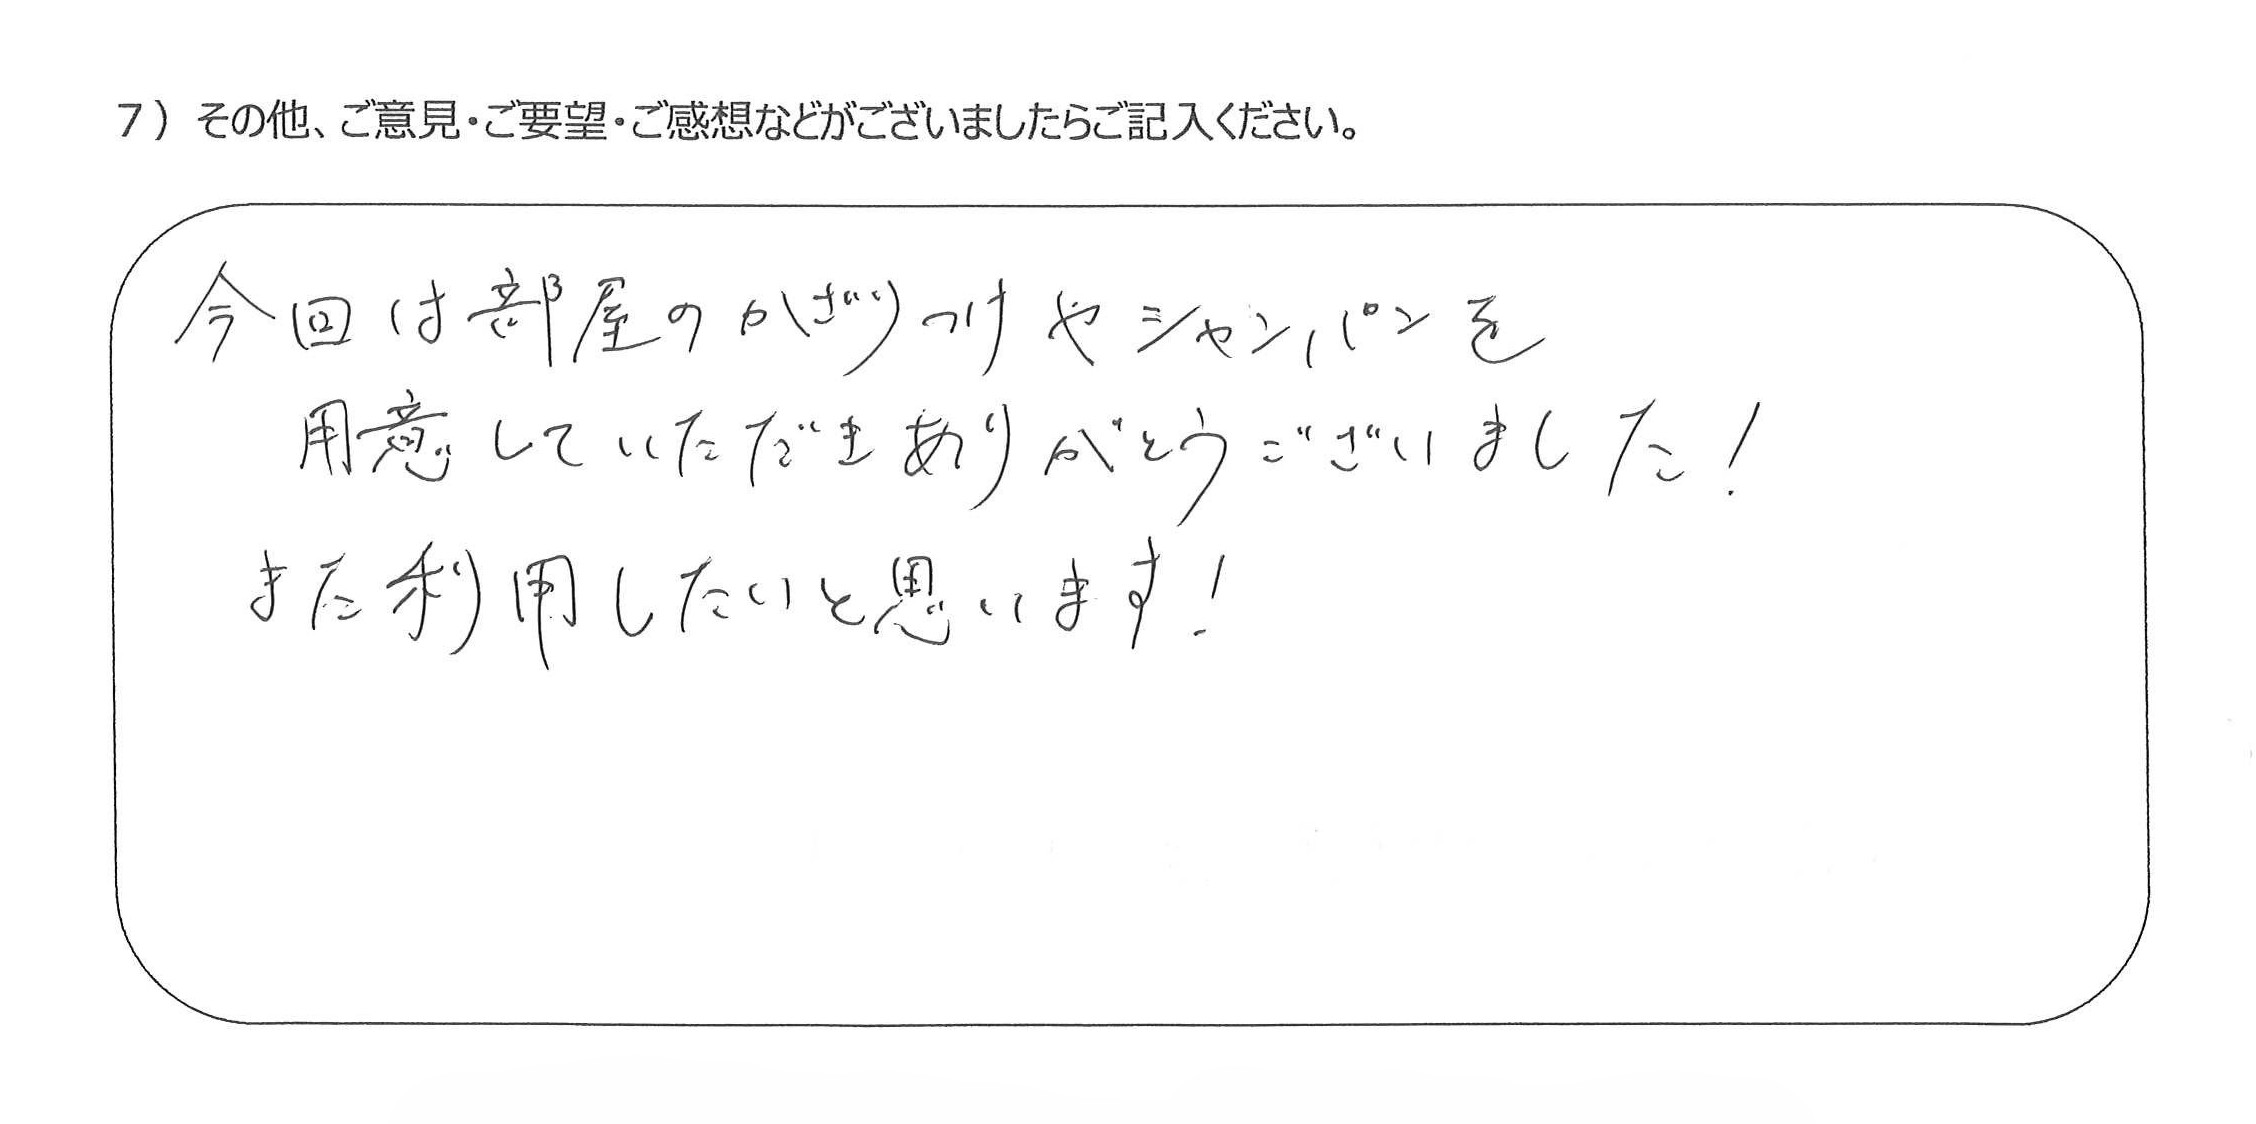 7）その他、ご意見・ご要望・ご感想などがございましたらご記入ください。
今回は部屋のかざりつけやシャンパンを
用意していただきありがとうございました！
また利用したいと思います！